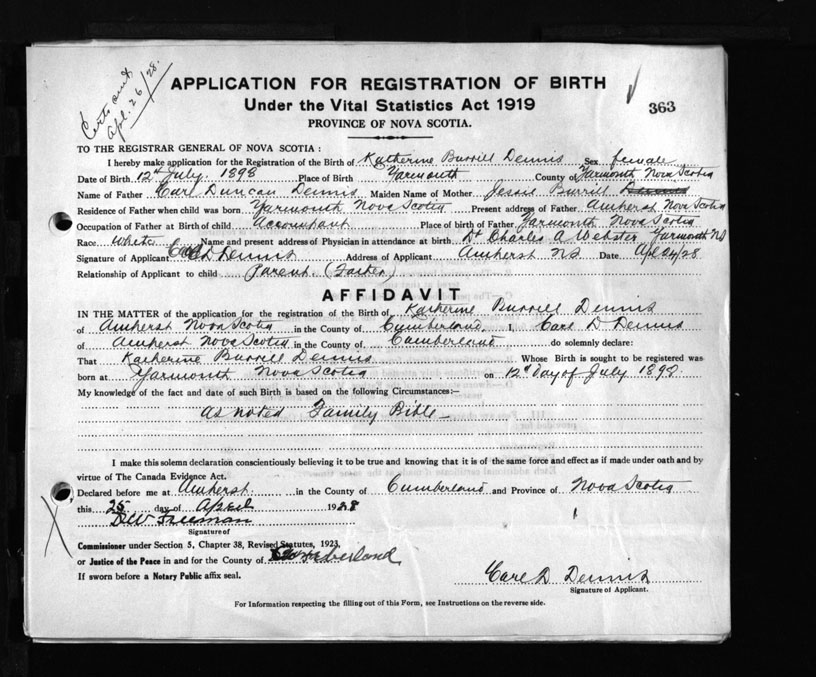 Certs and
Apl. 26/28.
APPLICATION FOR REGISTRATION OF BIRTH
Under the Vital Statistics Act 1919
363
PROVINCE OF NOVA SCOTIA.
TO THE REGISTRAR GENERAL OF NOVA SCOTIA :
I hereby make application for the Registration of the Birth of Katherine Burrill Dennis Sex female
Date of Birth 12th July. 1898 Place of Birth Yarmouth County of Yarmouth Nova Scotia
Name of Father Carl Duncan Dennis Maiden Name of Mother Jessie Burrill Dennis
Residence of Father when child was born Yarmouth Nova Scotia Present address of Father Amherst Nova Scotia
Occupation of Father at Birth of child Accompant Place of birth of Father Yarmouth Nova Scotia
Race White Name and present address of Physician in attendance at birth Dr Charles A Webster Yarmouth NS
Signature of Applicant Carl D Dennis Address of Applicant Amherst N.S. Date Apl 24/28
Relationship of Applicant to child Parent. (Father)
AFFIDAVIT
IN THE MATTER of the application for the registration of the Birth of Katherine Burrill Dennis
of Amherst Nova Scotia in the County of Cumberland I, Carl D Dennis
of Amherst Nova Scotia in the County of Cumberland do solemnly declare:
That Katherine Burrill Dennis Whose Birth is sought to be registered was
born at Yarmouth Nova Scotia on 12th day of July 1898
My knowledge of the fact and date of such Birth is based on the following Circumstances:—
As noted Family Bible
I make this solemn declaration conscientiously believing it to be true and knowing that it is of the same force and effect as if made under oath and by
virtue of The Canada Evidence Act.
Declared before me at Amherst in the County of Cumberland and Province of Nova Scotia
this 25 day of April 1928
DW Freeman
Signature of
Commissioner under Section 5, Chapter 38, Revised Statutes, 1923,
or Justice of the Peace in and for the County of Cumberland
If sworn before a Notary Public affix seal.
Carl D Dennis
Signature of Applicant.
For Information respecting the filling out of this Form, see Instructions on the reverse side.